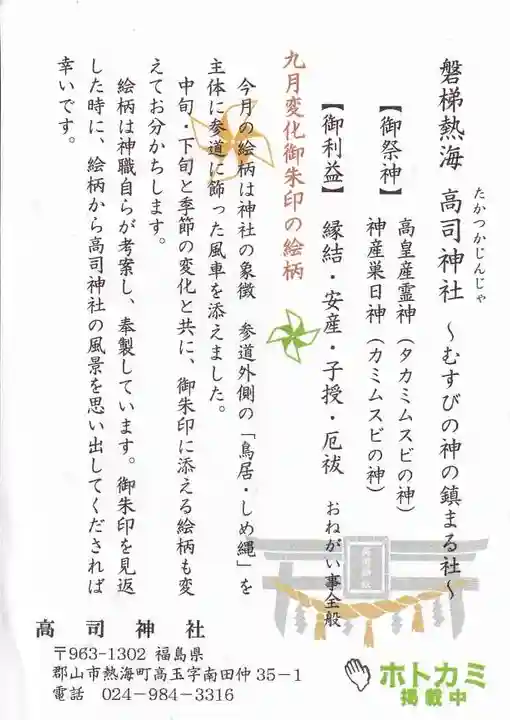 磐梯熱海 高司神社 ～むすびの神の鎮まる社～
たかつかじんじゃ
【御祭神】 高皇産霊神（タカミムスビの神）
神産巣日神（カミムスビの神）
【御利益】 縁結・安産・子授・厄祓 おねがい事全般
九月変化御朱印の絵柄
今月の絵柄は神社の象徴 参道外側の「鳥居・しめ縄」を
主体に参道に飾った風車を添えました。
中旬・下旬と季節の変化と共に、御朱印に添える絵柄も変
えてお分かちします。
絵柄は神職自らが考案し、奉製しています。御朱印を見返
した時に、絵柄から高司神社の風景を思い出してくだされば
幸いです。
高司神社
高司神社
〒963-1302 福島県
郡山市熱海町高玉字南田仲35－1
電話 024-984-3316
ホトカミ
掲載中